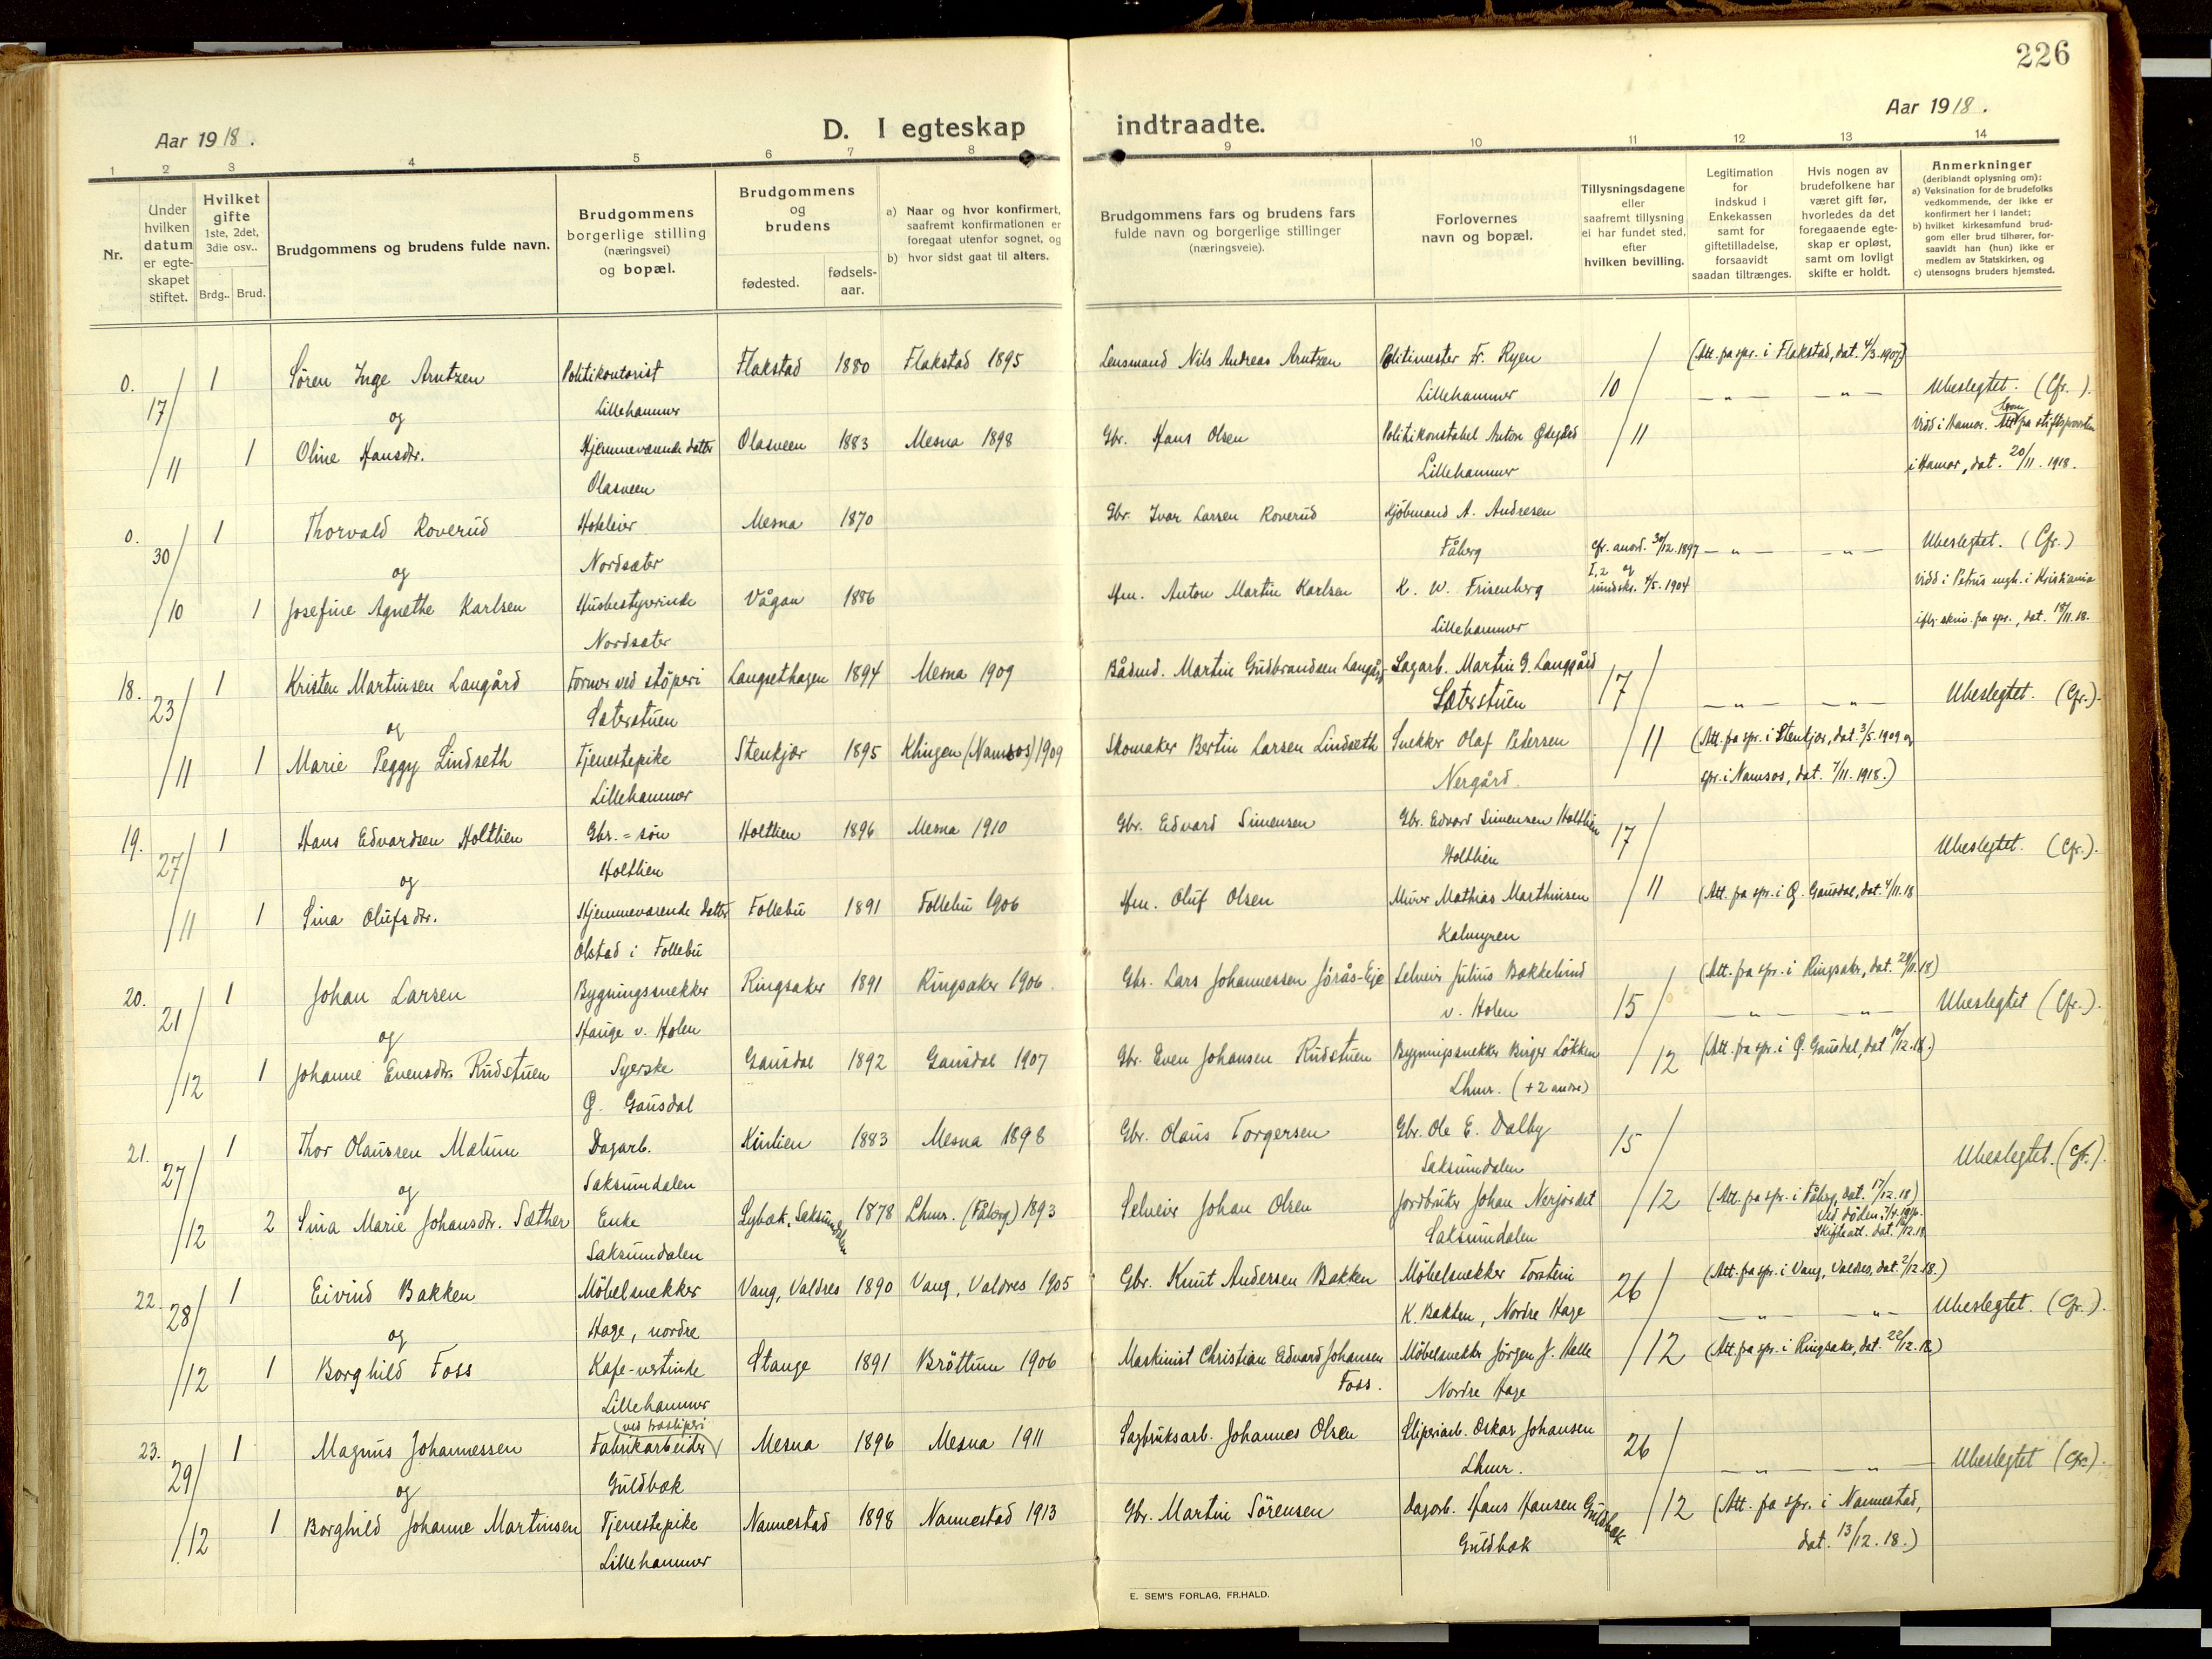 226
Aar 1918.
D. I egteskap indtraadte.
Aar 1918.
1 2 3 4 5 6 7 8 9 10 11 12 13 14
Nr.
Under hvilken datum er egteskapet stiftet.
Hvilket gifte 1ste, 2det, 3die osv..
Brdg.. Brud.
Brudgommens og brudens fulde navn.
Brudgommens borgerlige stilling (næringsvei) og bopæl.
Brudgommens og brudens
fødested. fødselsaar.
a) Naar og hvor konfirmert, saafremt konfirmationen er foregaat utenfor sognet, og
b) hvor sidst gaat til alters.
Brudgommens fars og brudens fars fulde navn og borgerlige stillinger (næringsveie).
Forlovernes navn og bopæl.
Tillysningsdagene eller saafremt tillysning ei har fundet sted, efter hvilken bevilling.
Legitimation for indskud i Enkekassen samt for giftetilladelse, forsaavidt saadan tiltrænges.
Hvis nogen av brudefolkene har været gift før, hvorledes da det foregaaende egteskap er opløst, samt om lovligt skifte er holdt.
Anmerkninger
(deriblandt oplysning om):
a) Vaksination for de brudefolks vedkommende, der ikke er konfirmert her i landet;
b) hvilket kirkesamfund brudgom eller brud tilhører, forsaavidt han (hun) ikke er medlem av Statskirken, og
c) utensogns bruders hjemsted.
0. 17/11 1 Sören Inge Arntzen Politikontorist Lillehammer Flakstad 1880 Flakstad 1895 Lensmand Nils Andreas Arntzen Politimester Fr. Ryen Lillehammer 10/11 (Att. fra spr. i Flakstad, dat. 4/3.1907) — „ — — „ — Ubeslegtet. (Cfr.).
og
1 Oline Hansdtr. Hjemmeværende datter Olasveen Olasveen 1883 Mesna 1898 Gbr. Hans Olsen Politikonstabel Anton Ødegård Lillehammer Viėd i Hamar. fra stiftsprovsten i Hamar, dat. 20/11. 1918.
0. 30/10 1 Thorvald Roverud Hoteleier Nordsæter Mesna 1870 Gbr. Ivar Larsen Roverud Kjöbmand A. Andresen Fåberg Cfr. anord. 30/12.1897 I,2 og rundskr. 4/5.1904 — „ — — „ — Ubeslegtet. (Cfr.)
og
1 Josefine Agnethe Karlsen Husbestyrerinde Nordsæter Vågan 1886 Am. Anton Martin Karlsen K. W. Frisenberg Lillehammer viėd i Petrus mgh. i Kristiania iflg. skriv. fra spr., dat. 18/11.18.
18. 23/11 1 Kristen Martinsen Langård Former ved stöperi Sæterstuen Langsethagen 1894 Mesna 1909 Bådmd. Martin Gudbrandsen Langård Sagarb. Martin G. Langgård Sæterstuen 17/11 — „ — — „ — Ubeslegtet. (Cfr.).
og
1 Marie Peggy Lindseth Tjenestepike Lillehammer Stenkjær 1895 Klingen (Namsos) 1909 Skomaker Bertin Larsen Lindseth Snekker Olaf Pedersen Nergård. (Att. fra spr. i Stenkjær, dat. 3/5. 1909 og spr. i Namsos, dat. 7/11. 1918.)
19. 27/11 1 Hans Edvardsen Holtlien Gbr.=søn Holtlien Holtlien 1896 Mesna 1910 Gbr. Edvard Simensen Gbr. Edvard Simensen Holtlien Holtlien 17/11 Ubeslegtet. (Cfr.).
og
1 Sina Olufsdtr. Hjemmeværende datter Olstad i Follebu Follebu 1891 Follebu 1906 Oluf Olsen Murer Mathias Marthinsen Kalmyren (Att. fra spr. i Ø. Gausdal, dat. 4/11.18
20. 21/12 1 Johan Larsen Bygningssnekker Hauge v. Holen Ringsaker 1891 Ringsaker 1906. Gbr. Lars Johannessen Jørås-Eje Selveier Julius Bakkelund v. Holen 15/12 (Att. fra spr. i Ringsaker, dat. 29/11.18) — „ — — „ — Ubeslegtet (Cfr.).
og
1 Johanne Evensdtr. Rudstuen Syerske Ø. Gausdal Gausdal 1892 Gausdal 1907 Gbr. Even Johansen Rudstuen Bygningssnekker Birger Løkken Lhmr. (+2 andre) (Att. fra spr. i Ø. Gausdal, dat 10/12.18.)
21. 27/12 1 Thor Olaussen Mælum Dagarb. Saksumdalen Kinlien 1883 Mesna 1898 Gbr. Olaus Torgersen Gbr. Ole E. Dalby Saksumdalen 15/12 Ubeslegtet. (Cfr.).
og
2 Sina Marie Johansdtr. Sæther Enke Saksumdalen Lybæk, Saksumdalen 1878 Lhmr. (Fåberg) 1893 Selveier Johan Olsen Jordbruker Johan Nerjordet Saksumdalen (Att. fra spr. i Fåberg, dat. 17/12.18) Ved döden, Skifteatt. dat.
22. 28/12 1 Eivind Bakken Möbelsnekker Hage, nordre Vang, Valdres 1890 Vang, Valdres 1905 Gbr. Knut Andersen Bakken Möbelsnekker Torstein K. Bakken, Nordre Hage 26/12 (Att. fra spr. i Vang, Valdres, dat. 2/12.18.) — „ — — „ — Ubeslegtet. (Cfr.).
og
1 Borghild Foss Kafe-vertinde Lillehammer Stange 1891 Bröttum 1906 Maskinist Christian Edvard Johansen Foss. Möbelsnekker Jörgen J. Helle Nordre Hage (Att. fra spr. i Ringsaker, dat. 22/12.18)
23. 29/12 1 Magnus Johannessen Fabrikarbeider (ved træsliperi) Guldbæk Mesna 1896 Mesna 1911 Sagbruksarb. Johannes Olsen Sliperiarb. Oskar Johansen Lhmr. 26/12 — „ — — „ — Ubeslegtet (Cfr.).
og
1 Borghild Johanne Martinsen Tjenestepike Lillehammer Nannestad 1898 Nannestad 1913 Gbr. Martin Sörensen Dagarb. Hans Hansen Guldbæk Guldbæk (Att. fra spr. i Nannestad, dat. 13/12.18.)
E. SEM'S FORLAG, FR.HALD.